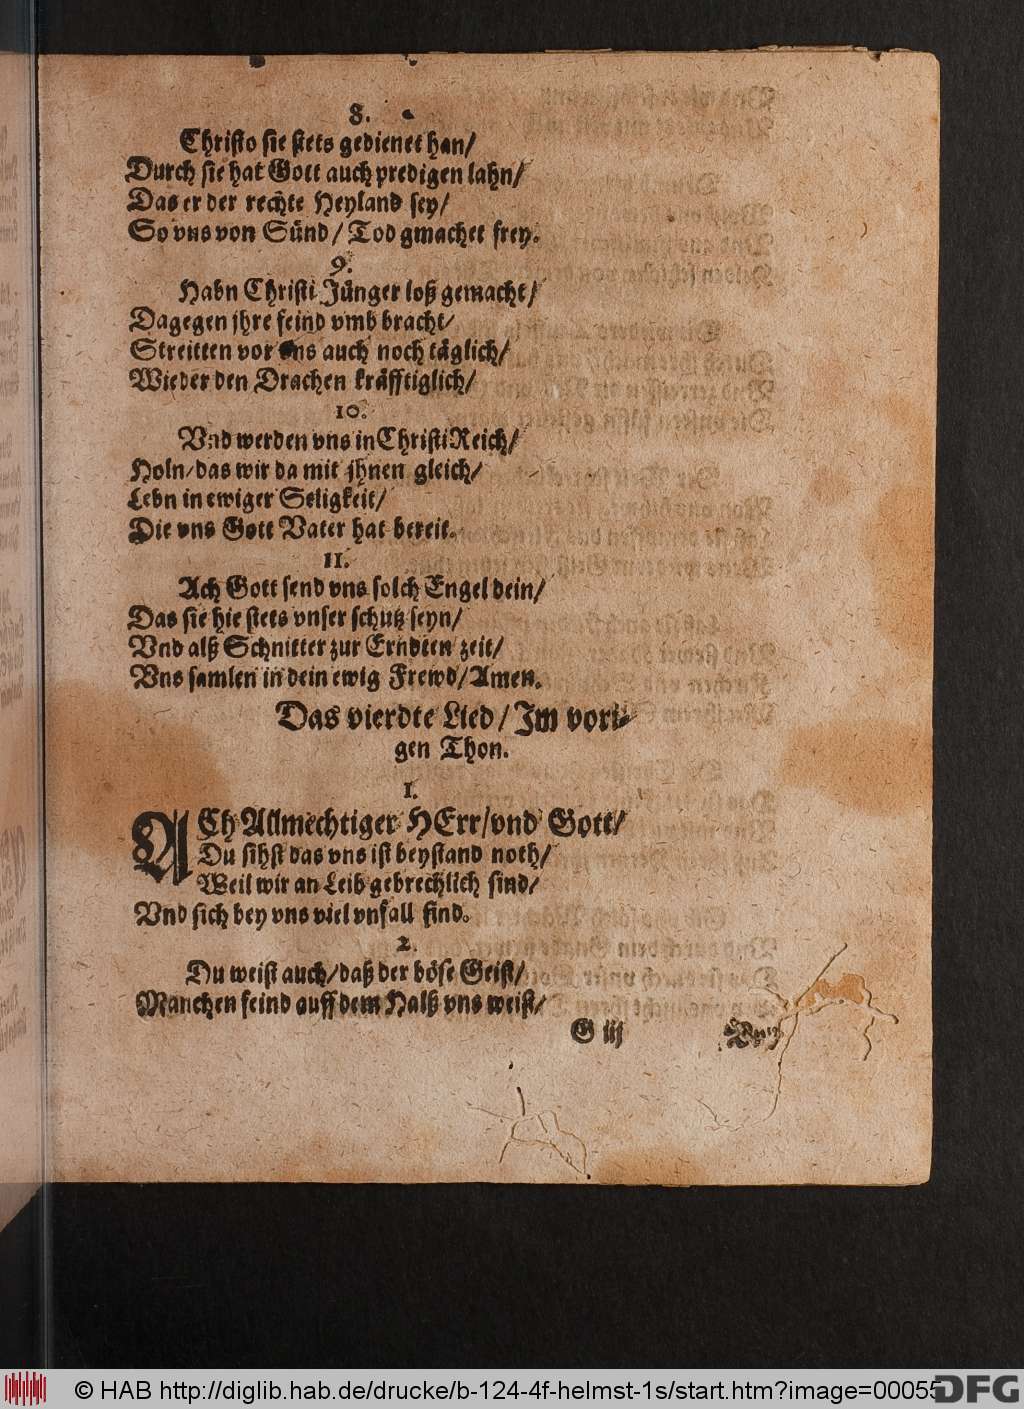 8.
Christo sie stets gedienet han/
Durch sie hat Gott auch predigen lahn/
Das er der rechte Heyland sey/
So vns von Sünd/ Tod gmachet frey.
9.
Habn Christi Jünger loß gemacht/
Dagegen jhre feind vmb bracht/
Streitten vor vns auch noch täglich/
Wieder den Drachen kräfftiglich/
10.
Vnd werden vns in Christi Reich/
Holn/das wir da mit jhnen gleich/
Lebn in ewiger Seligkeit/
Die vns Gott Vater hat bereit.
11.
Ach Gott send vns solch Engel dein/
Das sie hie stets vnser schutz seyn/
Vnd alß Schnitter zur Erndten zeit/
Vns samlen in dein ewig Frewd/Amen.
Das vierdte Lied/Im vori-
gen Thon.
1.
ACh Allmechtiger HErr/vnd Gott/
Du sihst das vns ist beystand noth/
Weil wir an Leib gebrechlich sind/
Vnd sich bey vns viel vnfall find.
2.
Du weist auch/daß der böse Geist/
Manchen feind auff dem Halß vns weist/
G iij
© HAB http://diglib.hab.de/drucke/b-124-4f-helmst-1s/start.htm?image=00055
DFG